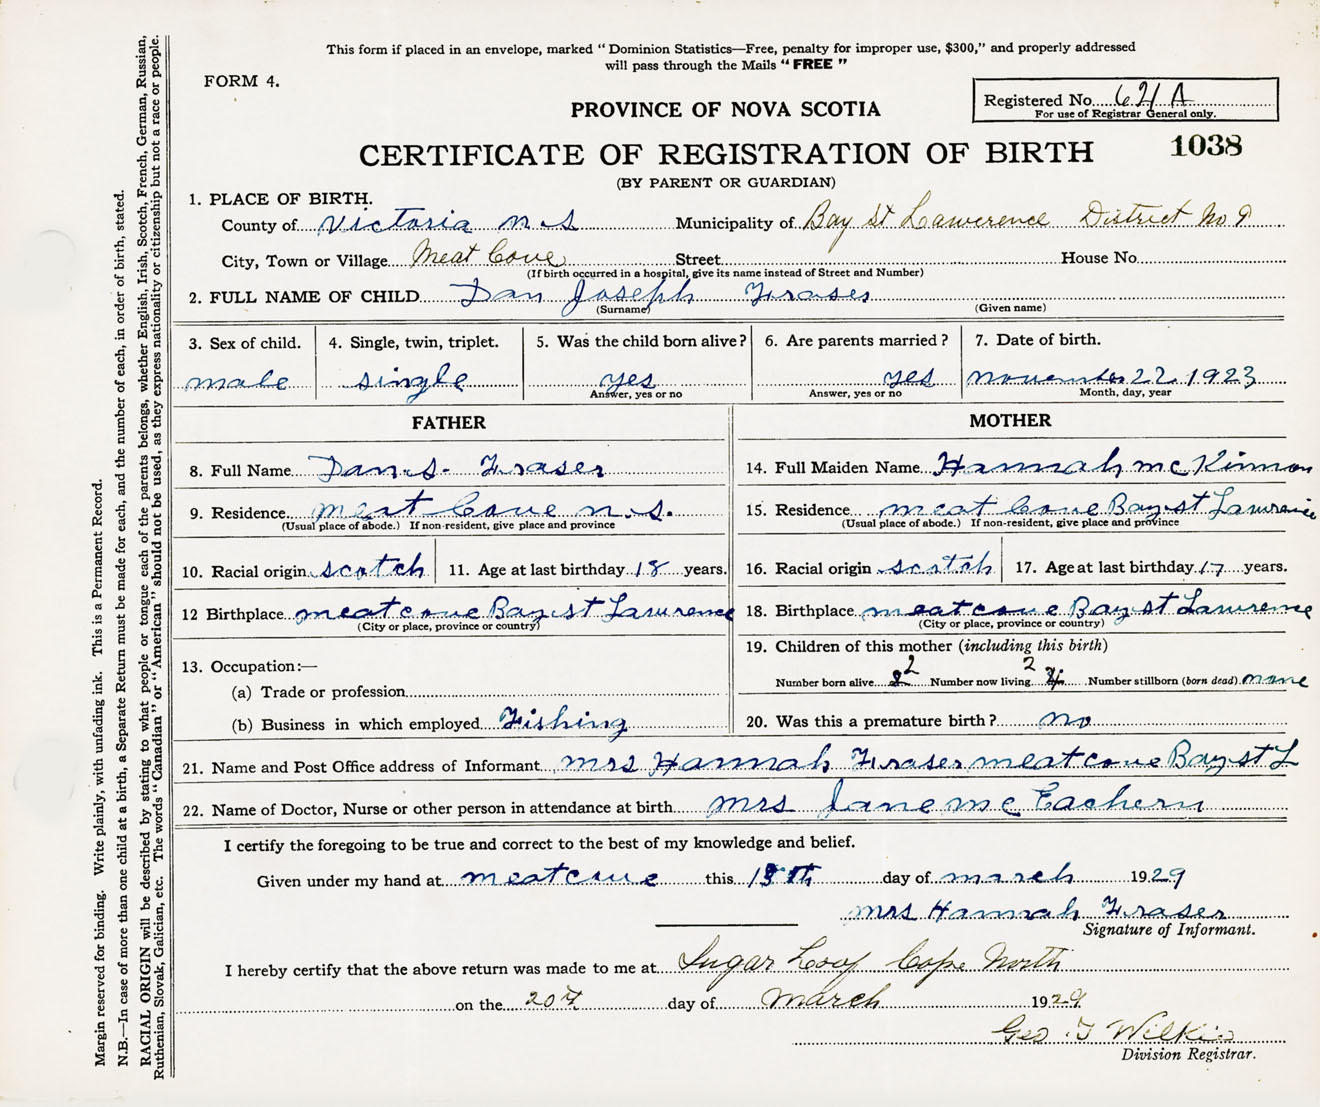 This form if placed in an envelope, marked “ Dominion Statistics—Free, penalty for improper use, $300,” and properly addressed
will pass through the Mails “ FREE ”
FORM 4.
Registered No. 621 A
For use of Registrar General only.
PROVINCE OF NOVA SCOTIA
CERTIFICATE OF REGISTRATION OF BIRTH
1038
(BY PARENT OR GUARDIAN)
1. PLACE OF BIRTH.
County of Victoria n.s Municipality of Bay St Lawerence District No 9
City, Town or Village Meat Cove Street House No
(If birth occurred in a hospital, give its name instead of Street and Number)
2. FULL NAME OF CHILD Dan Joseph Fraser
(Surname) (Given name)
3. Sex of child. 4. Single, twin, triplet. 5. Was the child born alive? 6. Are parents married? 7. Date of birth.
male single yes yes november 22 1923
Answer, yes or no Answer, yes or no Month, day, year
FATHER MOTHER
8. Full Name Dan. S. Fraser 14. Full Maiden Name Hannah mc Kinnon
9. Residence meat Cove n.s. 15. Residence meat Cove Bay st Lawrence
(Usual place of abode.) If non-resident, give place and province (Usual place of abode.) If non-resident, give place and province
10. Racial origin scotch 11. Age at last birthday 18 years. 16. Racial origin scotch 17. Age at last birthday 17 years.
12 Birthplace meatcove Bay st Lawrence 18. Birthplace meatcove Bay st Lawrence
(City or place, province or country) (City or place, province or country)
13. Occupation:— 19. Children of this mother (including this birth)
(a) Trade or profession Number born alive 2 Number now living 2 Number stillborn (born dead) none
(b) Business in which employed Fishing 20. Was this a premature birth? no
21. Name and Post Office address of Informant mrs Hannah Fraser meatcove Bay st L
22. Name of Doctor, Nurse or other person in attendance at birth mrs Jane mc Eachern
I certify the foregoing to be true and correct to the best of my knowledge and belief.
Given under my hand at meatcove this th day of march 1929
mrs Hannah Fraser
Signature of Informant.
I hereby certify that the above return was made to me at Sugar Loof Cape North
on the 20 day of March 1929
Geo. T Wilkie
Division Registrar.
Margin reserved for binding. Write plainly, with unfading ink. This is a Permanent Record.
N.B.—In case of more than one child at a birth, a Separate Return must be made for each, and the number of each, in order of birth, stated.
RACIAL ORIGIN will be described by stating to what people or tongue each of the parents belongs, whether English, Irish, Scotch, French, German, Russian,
Ruthenian, Slovak, Galician, etc. The words “ Canadian ” or “ American ” should not be used, as they express nationality or citizenship but not a race or people.